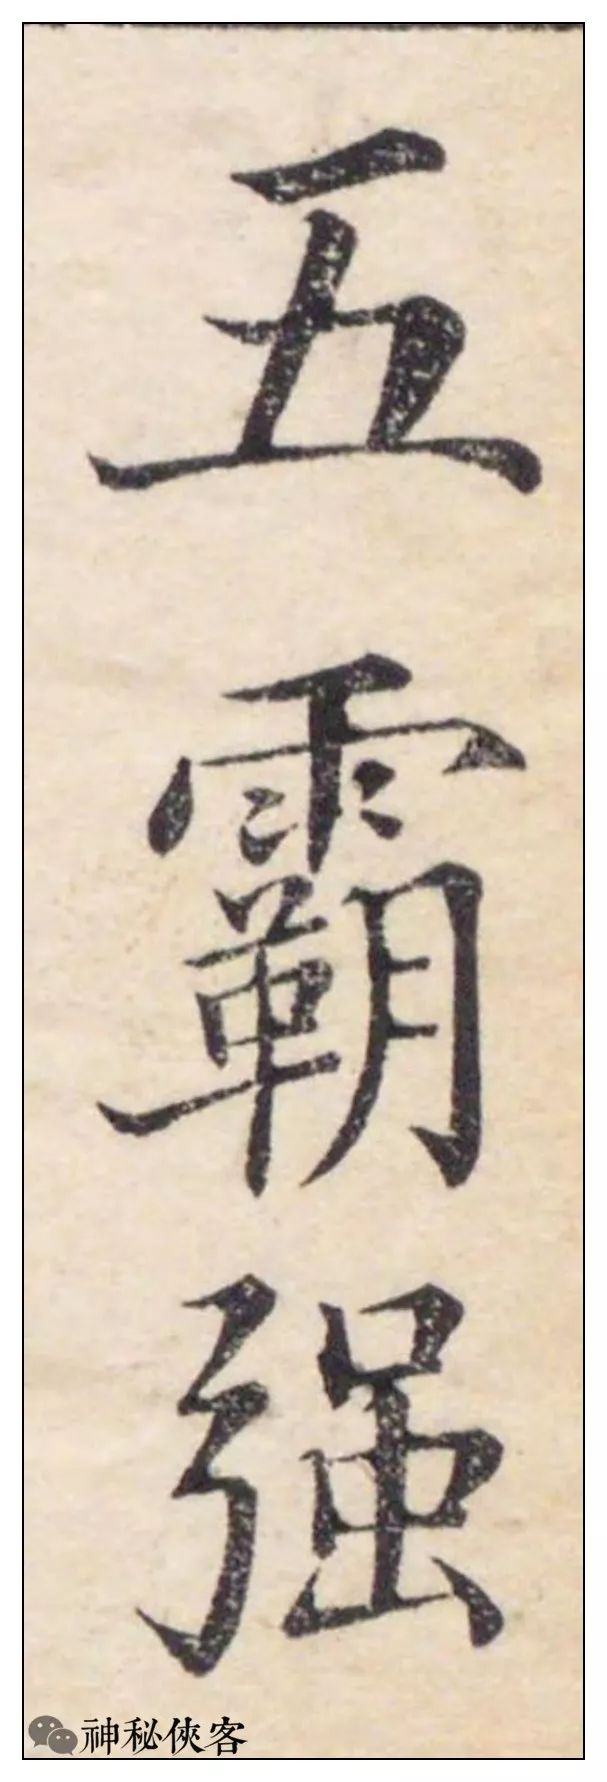 五霸强
神秘俠客